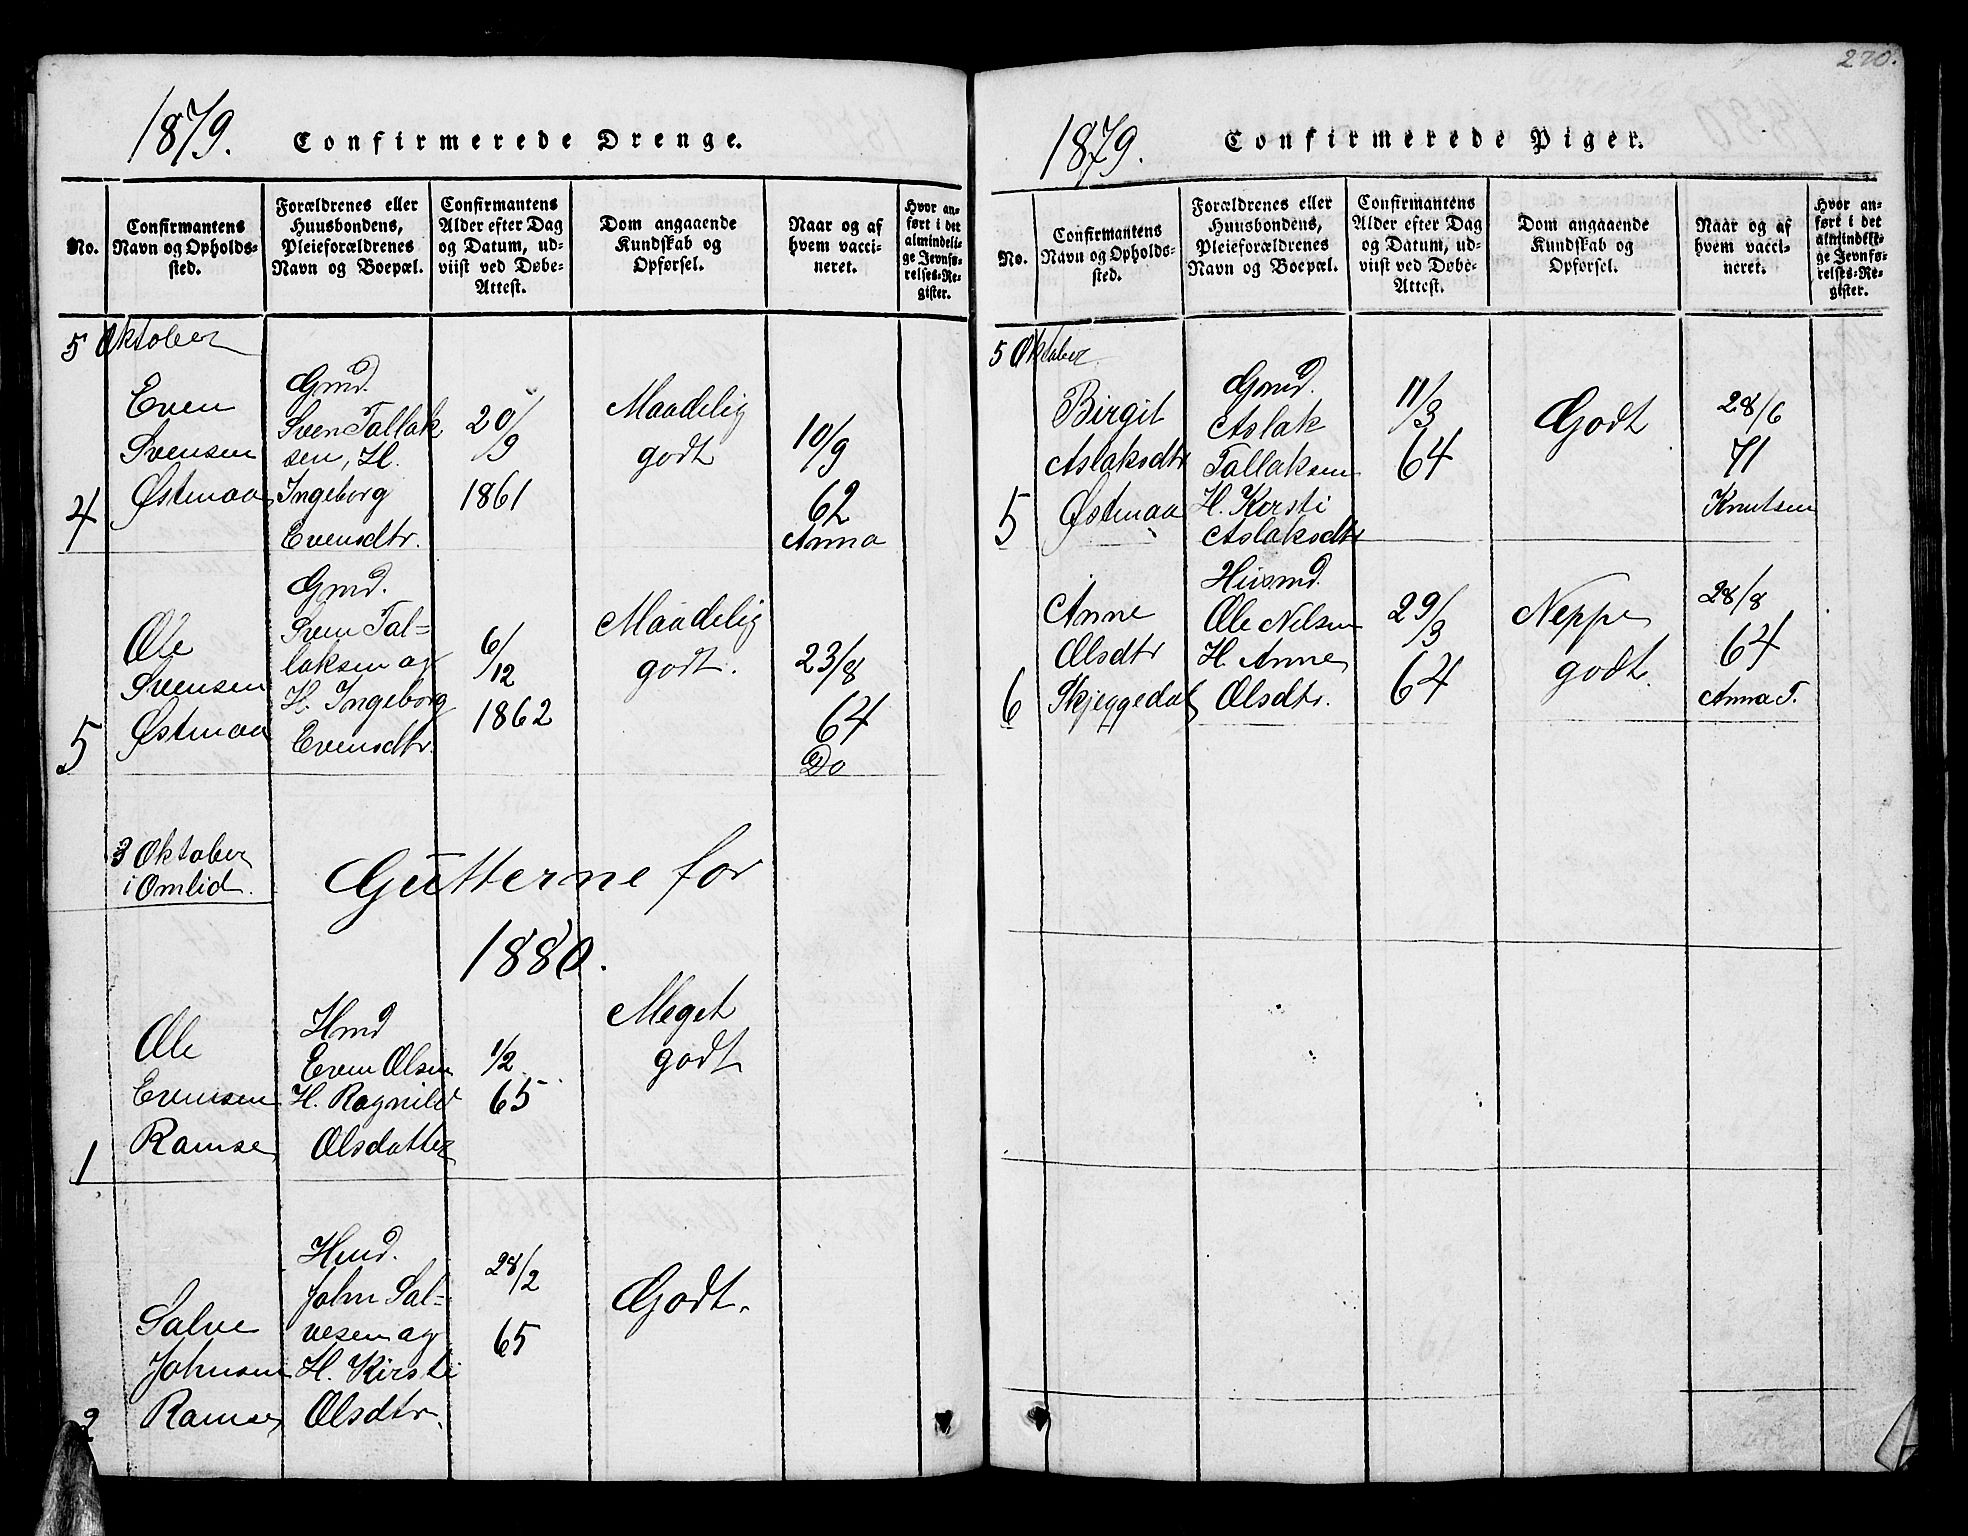 1879.
Confirmerede Drenge.
No.
Confirmantens
Navn og Opholds-
sted.
Forældrenes eller
Huusbondens,
Pleieforældrenes
Navn og Boepæl.
Confirmantens
Alder efter Dag
og Datum, ud-
viist ved Døbe-
Attest.
Dom angaaende
Kundskab og
Opførsel.
Naar og af
hvem vacci-
neret.
Hvor an-
ført i det
almindeli-
ge Jevnfø-
relses-Re-
gister.
5 Oktober
4
Even
Svensen
Østmaa
Gmd.
Sven Tallak
sen, H.
Ingeborg
Evensdtr.
20/9
1861
Maadelig
godt
10/9
62
Anna
5
Ole
Svensen
Østmaa
Gmd.
Sven Tal=
laksen og
H. Ingeborg
Evensdtr.
6/12
1862
Maadelig
godt.
23/8
64
Do
3 Oktober
i Omlid.
Gutterne for
1880.
1
Ole
Evensen
Ramse
Hmd
Even Olsen
H. Ragnild
Olsdatter
1/2
65
Meget
godt
2
Salve
Johnsen
Ramse
Hmd.
John Sal=
vesen og
H. Kirsti
Olsdtr.
28/2
65
Godt.
270.
1879.
Confirmerede Piger.
No.
Confirmantens
Navn og Opholds-
sted.
Forældrenes eller
Huusbondens,
Pleieforældrenes
Navn og Boepæl.
Confirmantens
Alder efter Dag
og Datum, ud-
viist ved Døbe-
Attest.
Dom angaaende
Kundskab og
Opførsel.
Naar og af
hvem vacci-
neret.
Hvor an-
ført i det
almindeli-
ge Jevnfø-
relses-Re-
gister.
5 Oktober
5
Birgit
Aslaksdtr
Østmaa
Gmd.
Aslak
Tallaksen
H. Kirsti
Aslaksdtr
11/3
64
Godt
28/6
71
Knutsen
6
Anne
Olsdtr
Skjeggedal
Husmd.
Ole Nilsen
H. Anne
Olsdtr.
29/3
64
Neppe
godt.
28/8
64
Anna T.